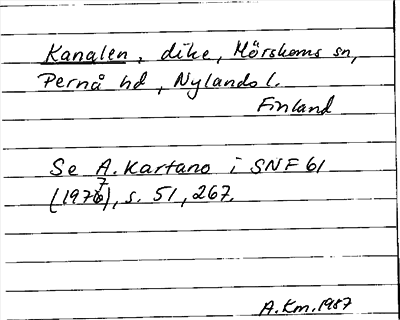 Kanalen, dike, Mörskoms sn,
Pernå hd, Nylands l.
Finland
Se A. Kartano i SNF 61
(1977), s. 51, 267.
A.Km. 1987